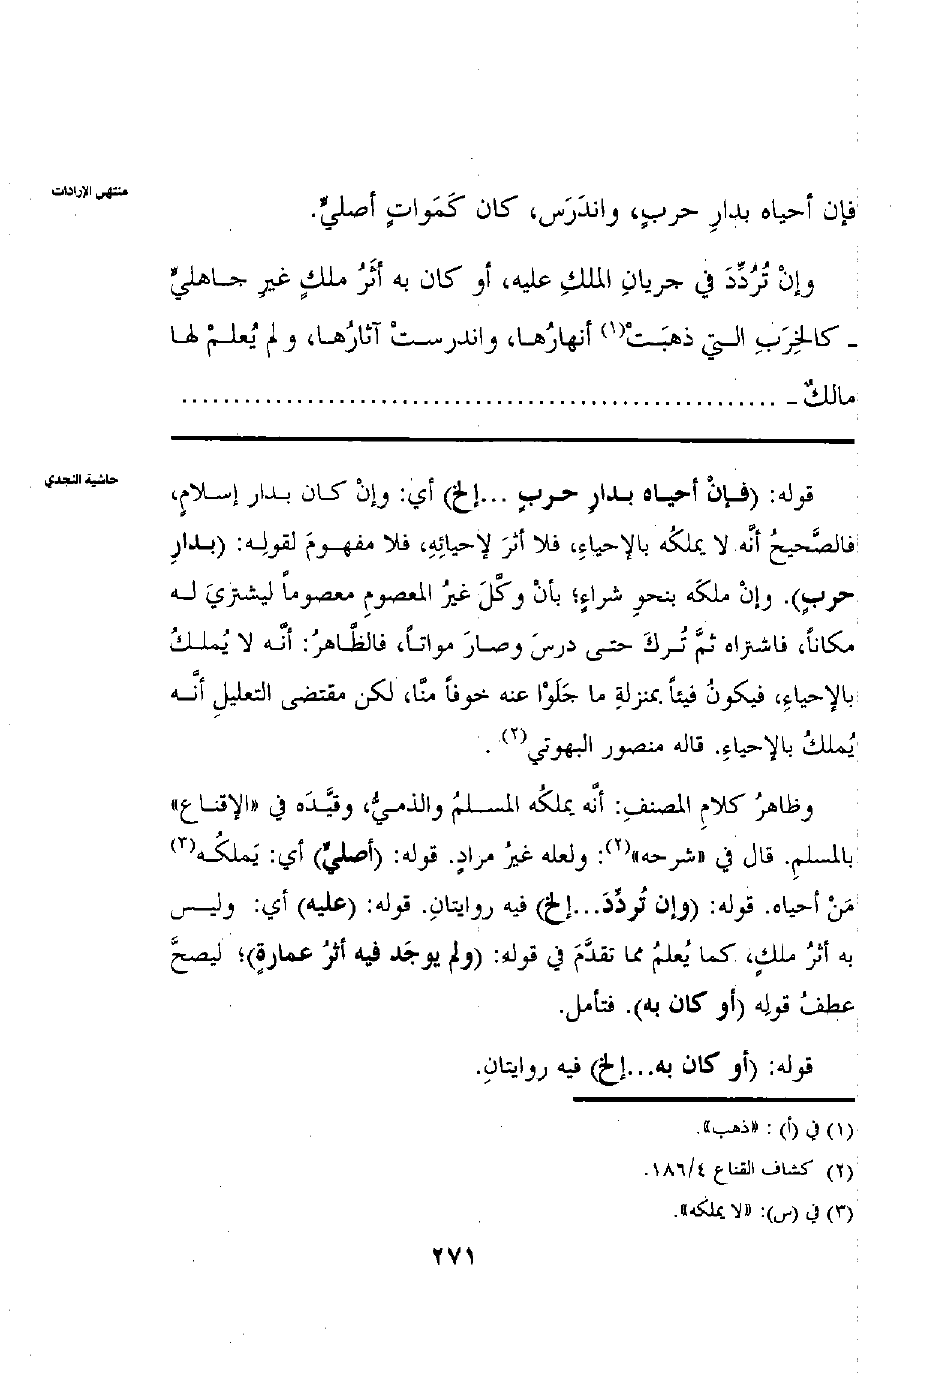 منتهى الإرادات
فإن أحياه بدارِ حربٍ، واندَرَس، كان كَمَواتٍ أصليٍّ.
وإنْ تُرُدِّدَ في جريانِ الملكِ عليه، أو كان به أثَرُ ملكٍ غيرِ جاهليٍّ
ـ كالخِرَبِ التي ذهبَتْ(١) أنهارُها، واندرستْ آثارُها، ولم يُعلمْ لها
مالكٌ ـ ........................................................
حاشية النجدي
قوله: (فإنْ أحياه بدارِ حربٍ ...إلخ) أي: وإنْ كان بدار إسلامٍ،
فالصَّحيحُ أنَّه لا يملكُه بالإحياءِ، فلا أثرَ لإحيائِهِ، فلا مفهومَ لقولِه: (بدارِ
حربٍ). وإنْ ملكَه بنحوِ شراءٍ؛ بأنْ وكَّلَ غيرُ المعصومِ معصوماً ليشتريَ له
مكاناً، فاشتراه ثمَّ تُركَ حتى درسَ وصارَ مواتاً، فالظَّاهرُ: أنَّه لا يُملكُ
بالإحياءِ، فيكونُ فيئاً بمنزلةِ ما جَلَوْا عنه خوفاً منَّا، لكن مقتضى التعليلِ أنَّه
يُملكُ بالإحياءِ. قاله منصور البهوتي(٢) .
وظاهرُ كلامِ المصنفِ: أنَّه يملكُه المسلمُ والذميُّ، وقيَّدَه في «الإقناع»
بالمسلمِ. قال في «شرحه»(٢): ولعله غيرُ مرادٍ. قوله: (أصليٍّ) أي: يَملكُه(٣)
مَنْ أحياه. قوله: (وإن تُردِّدَ...إلخ) فيه روايتانِ. قوله: (عليه) أي: وليس
به أثرُ ملكٍ، كما يُعلمُ مما تقدَّمَ في قوله: (ولم يوجَد فيه أثرُ عمارةٍ)؛ ليصحَّ
عطفُ قولِه (أو كان به). فتأمل.
قوله: (أو كان به...إلخ) فيه روايتانِ.
(١) في (أ) : «ذهب».
(٢) كشاف القناع ١٨٦/٤.
(٣) في (س): «لا يملكه».
٢٧١